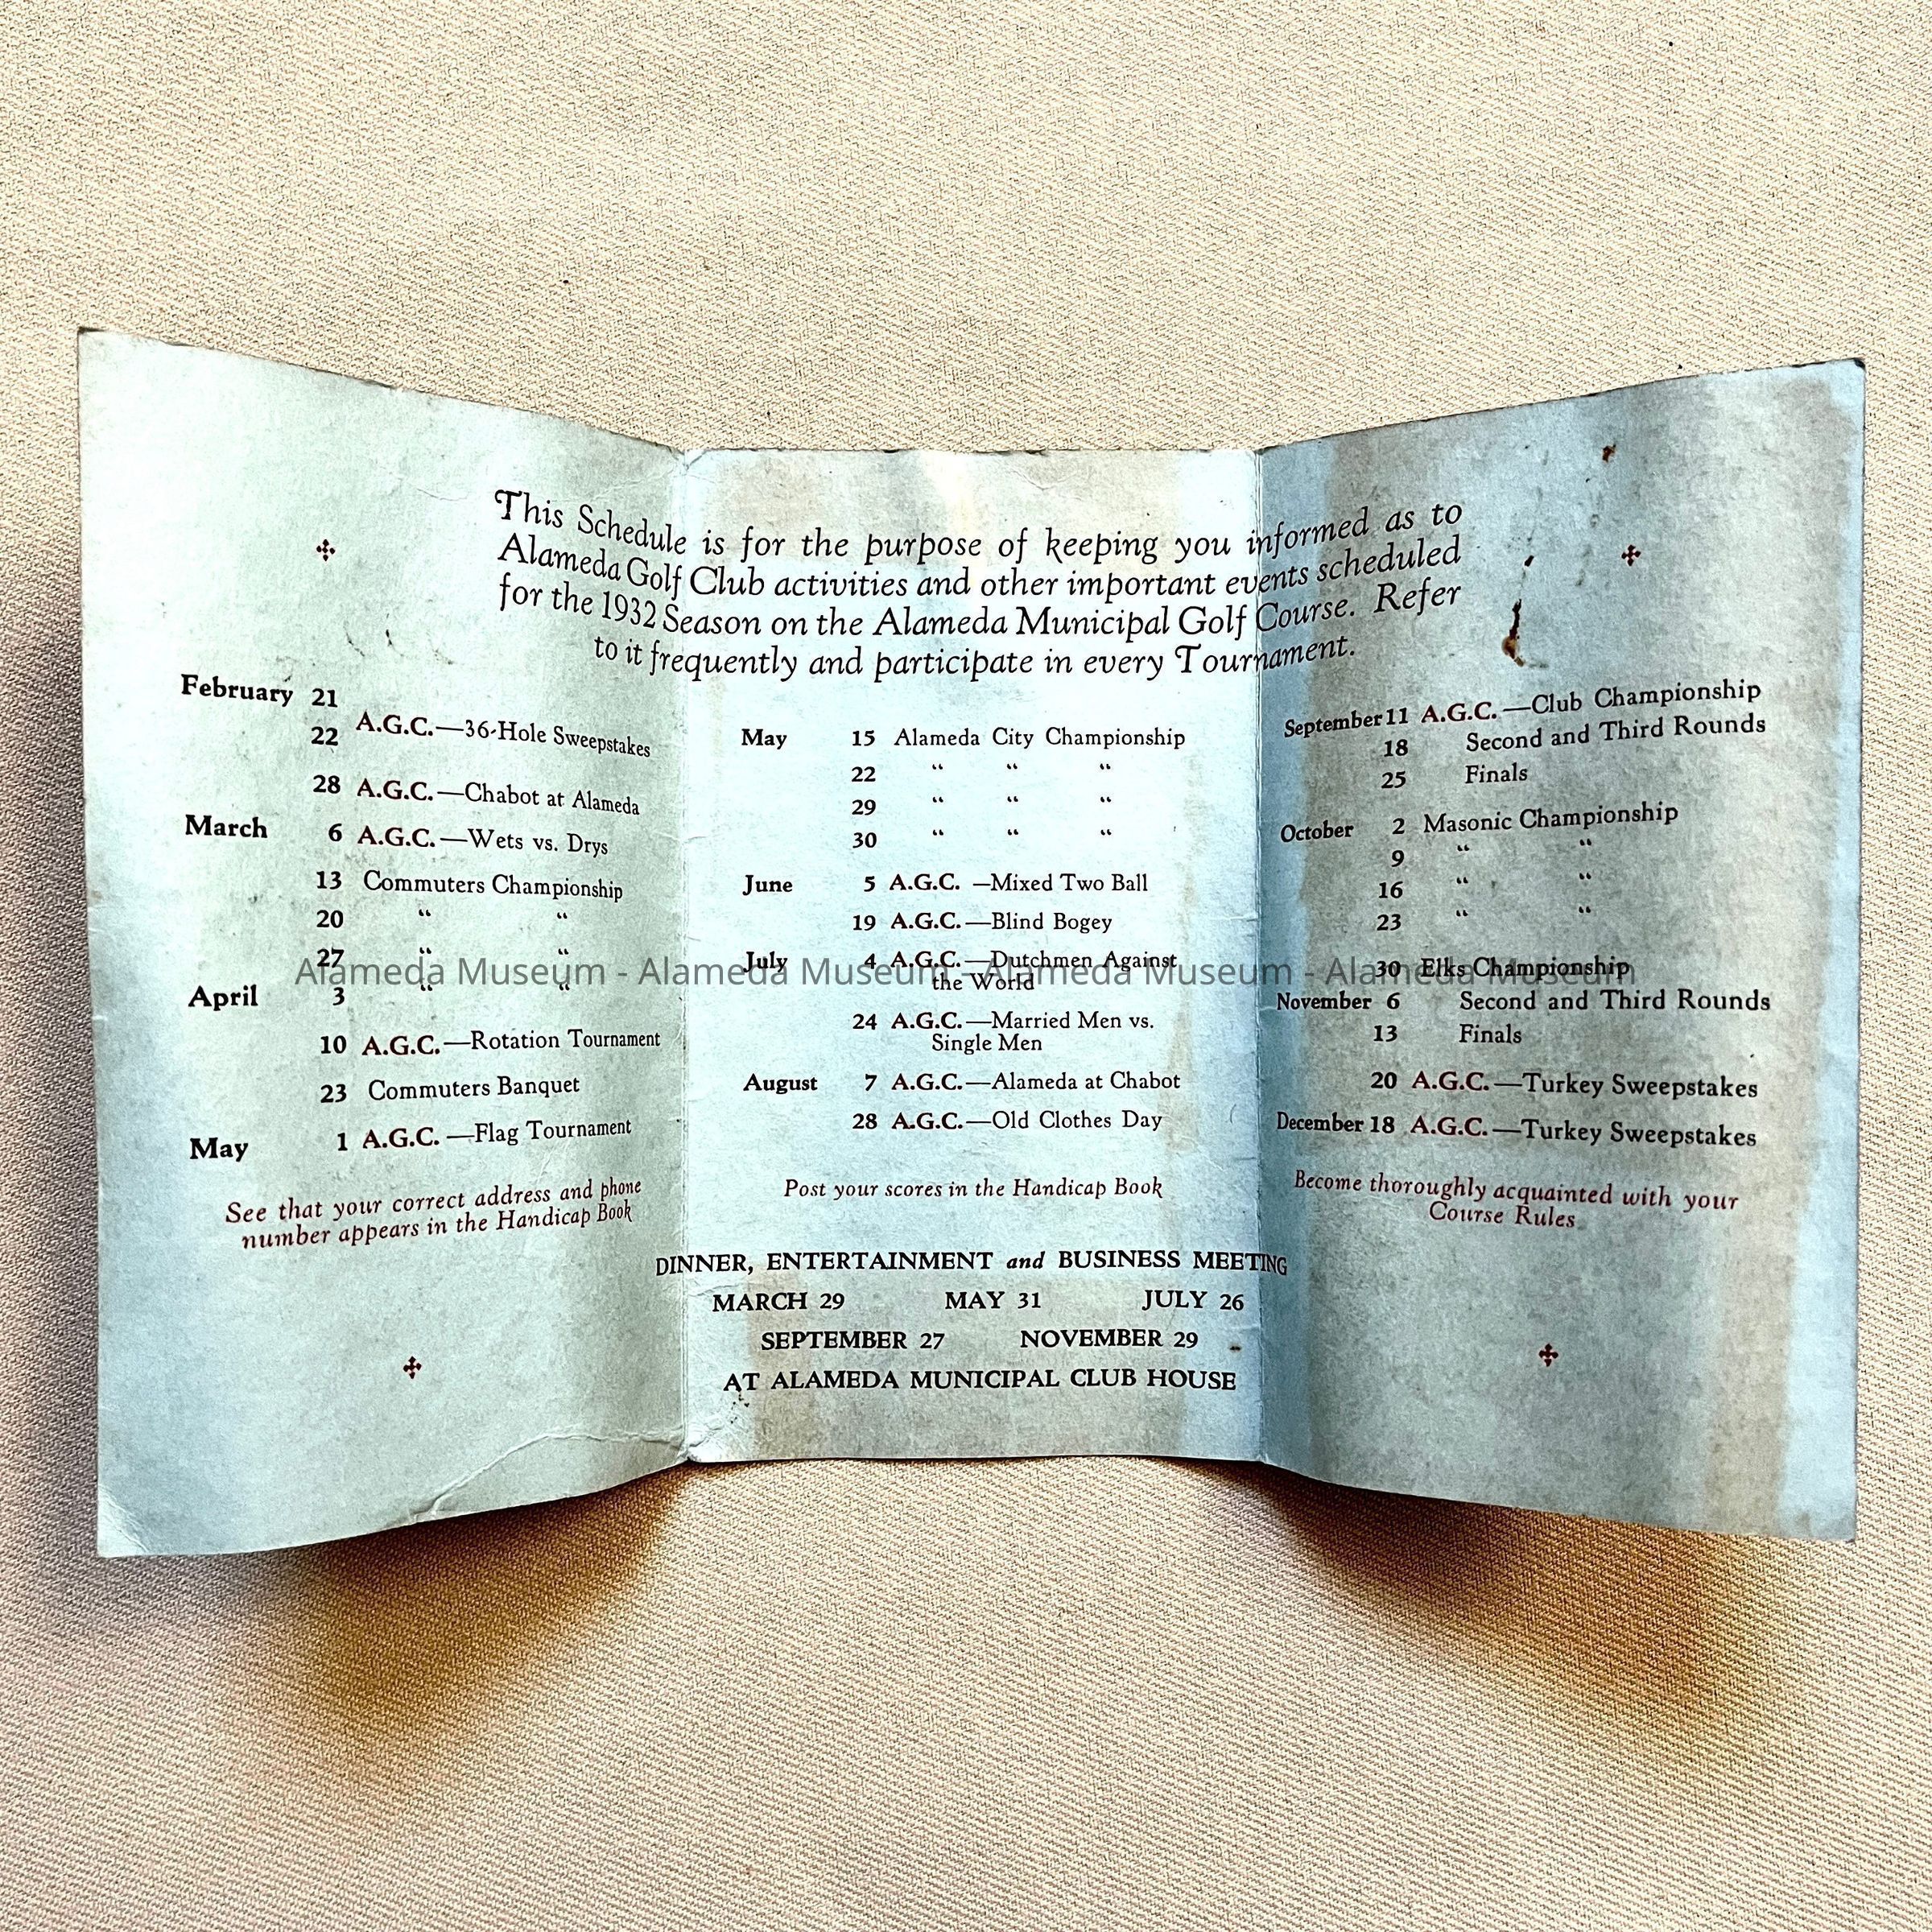 This Schedule is for the purpose of keeping you informed as to
Alameda Golf Club activities and other important events scheduled
for the 1932 Season on the Alameda Municipal Golf Course. Refer
to it frequently and participate in every Tournament.
February 21
22 A.G.C.—36-Hole Sweepstakes
28 A.G.C.—Chabot at Alameda
March 6 A.G.C.—Wets vs. Drys
13 Commuters Championship
20 “ “
27 “ “
April 3 “ “
10 A.G.C.—Rotation Tournament
23 Commuters Banquet
May 1 A.G.C.—Flag Tournament
See that your correct address and phone
number appears in the Handicap Book
May 15 Alameda City Championship
22 “ “ “
29 “ “ “
30 “ “ “
June 5 A.G.C. —Mixed Two Ball
19 A.G.C.—Blind Bogey
July 4 A.G.C.—Dutchmen Against
the World
24 A.G.C.—Married Men vs.
Single Men
August 7 A.G.C.—Alameda at Chabot
28 A.G.C.—Old Clothes Day
Post your scores in the Handicap Book
September 11 A.G.C.—Club Championship
18 Second and Third Rounds
25 Finals
October 2 Masonic Championship
9 “ “
16 “ “
23 “ “
30 Elks Championship
November 6 Second and Third Rounds
13 Finals
20 A.G.C.—Turkey Sweepstakes
December 18 A.G.C.—Turkey Sweepstakes
Become thoroughly acquainted with your
Course Rules
DINNER, ENTERTAINMENT and BUSINESS MEETING
MARCH 29 MAY 31 JULY 26
SEPTEMBER 27 NOVEMBER 29
AT ALAMEDA MUNICIPAL CLUB HOUSE
Alameda Museum - Alameda Museum - Alameda Museum - Alameda Museum